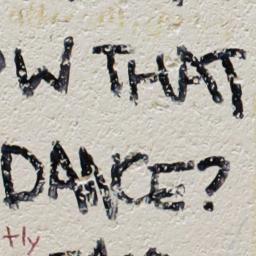 OW THAT
DANCE?
tly